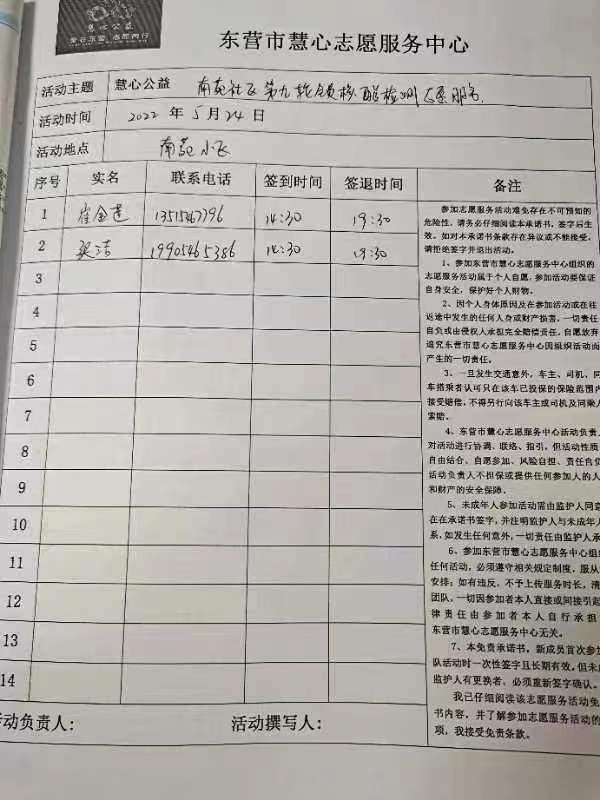 慧心公益
东营市慧心志愿服务中心
活动主题 慧心公益 南苑社区第九轮全员核酸检测志愿服务
活动时间 2022年5月24日
活动地点 南苑小区
序号 实名 联系电话 签到时间 签退时间 备注
1 崔金莲 14:30 19:30
2 梁洁 19905465386 14:30 19:30
3
4
5
6
7
8
9
10
11
12
13
14
参加志愿服务活动难免存在不可预知的
危险性,请务必仔细阅读本承诺书,签字后生
效。如对本承诺书条款存在异议或不能接受,
请拒绝签字并退出活动。
1、参加东营市慧心志愿服务中心组织的
志愿服务活动属于个人自愿,参加活动要保证
自身安全,保护好个人财物。
2、因个人身体原因及在参加活动或在往
返途中发生的任何人身或财产损害,一切责任
自负或由侵权人承担完全赔偿责任,自愿放弃
追究东营市慧心志愿服务中心因组织活动而
产生的一切责任。
3、一旦发生交通意外,车主、司机、同
车搭乘者认可只在该车已投保的保险范围内
接受赔偿,不得另行向该车主或司机及同乘人
索赔。
4、东营市慧心志愿服务中心活动负责
对活动进行协调、联络、指引,但活动性质
自由结合、自愿参加、风险自担、责任自负
活动负责人不担保或提供任何参加人的人
和财产的安全保障。
5、未成年人参加活动需由监护人同意
在在承诺书签字,并注明监护人与未成年人
系,如发生任何意外,一切责任由监护人承
6、参加东营市慧心志愿服务中心组织
任何活动,必须遵守相关规定制度,服从
安排;如有违反,不予上传服务时长,清
团队,一切因参加者本人直接或间接引起
律责任由参加者本人自行承担
东营市慧心志愿服务中心无关。
7、本免责承诺书,新成员首次参加
队活动时一次性签字且长期有效,但未成
监护人有更换者、必须重新签字确认。
我已仔细阅读该志愿服务活动免
书内容,并了解参加志愿服务活动的
项,我接受免责条款。
活动负责人: 活动撰写人: